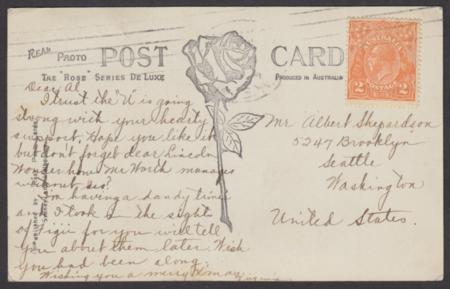 REAL PHOTO POST CARD
THE "ROSE" SERIES DE LUXE
PRODUCED IN AUSTRALIA
AUSTRALIA
2 2
Dear Al,
I trust the "U" is going
strong with your hearty
support. Hope you like it
but don't forget dear Lincoln
Wonder how Mr Worth manages
without us?
Am having a dandy time
and I took in the sight
of Fiji for you will tell
you about them later. Wish
you had been along.
Wishing you a merry Xmas
Mr Albert Shepardson
5247 Brooklyn
Seattle
Washington
United States.